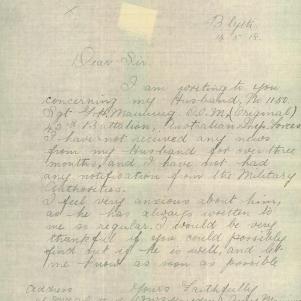 Blyth
14.5.18.
Dear Sir.
I am writing to you
concerning my Husband, No 1150.
Sgt G.H. Manning D.C.M. (Original)
Battalion, Australian Imp. Forces
I have not received any news
from my Husband for over three
months, and I have not had
any notification from the Military
Authorities.
I feel very anxious about him,
as he has always written to
me so regular. I would be very
thankful if you could possibly
find out if he is well, and let
me know as soon as possible
Address Yours Faithfully